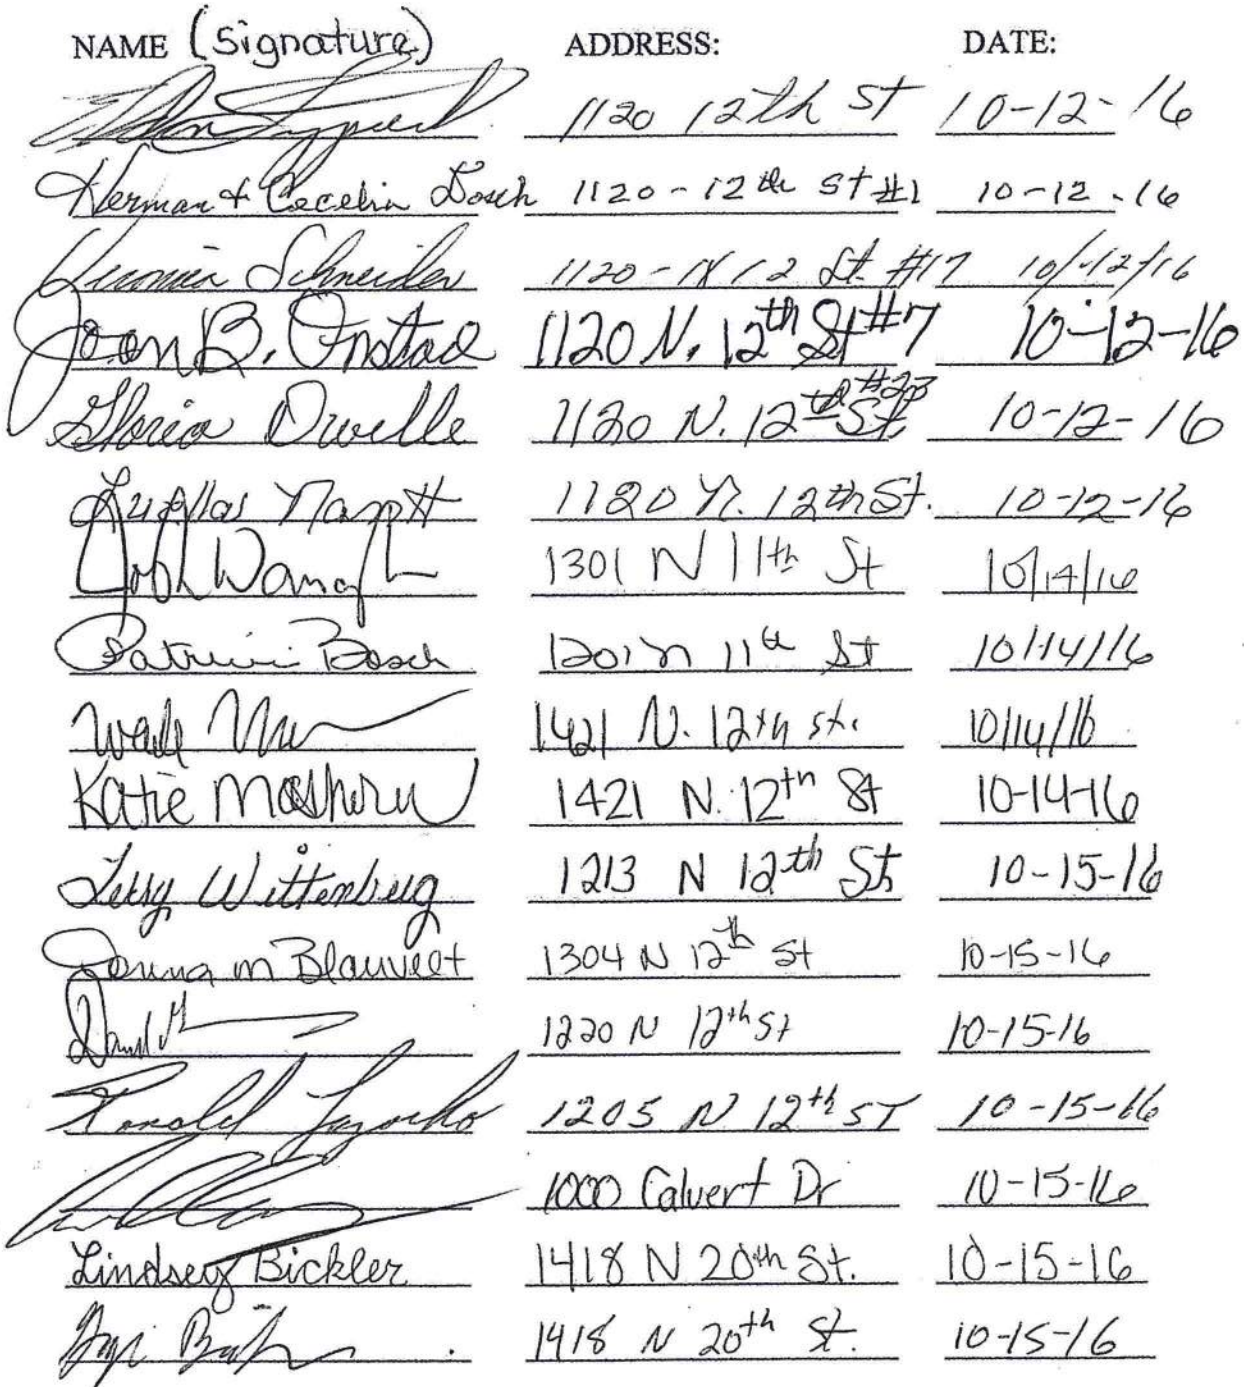 NAME (Signature) ADDRESS: DATE:
1120 12th St 10-12-16
Herman & Cecelia Dosch 1120-12th St #1 10-12-16
Schneider 1120-N 12 St. #17 10/12/16
Joan B. Onstad 1120 N. 12th St #7 10-12-16
Gloria Duelle 1120 N. 12th St #23 10-12-16
1120 N. 12th St. 10-12-16
Josh 1301 N 11th St 10/14/16
Patricia Bosch 1201 N 11th St 10/14/16
Wade 1421 N. 12th St. 10/14/16
Katie 1421 N. 12th St 10-14-16
Wittenburg 1213 N 12th St 10-15-16
Donna M Blauvelt 1304 N 12th St 10-15-16
1220 N 12th St 10-15-16
Ronald 1205 N 12th ST 10-15-16
1000 Calvert Dr 10-15-16
Lindsey Bickler 1418 N 20th St. 10-15-16
1418 N 20th St. 10-15-16